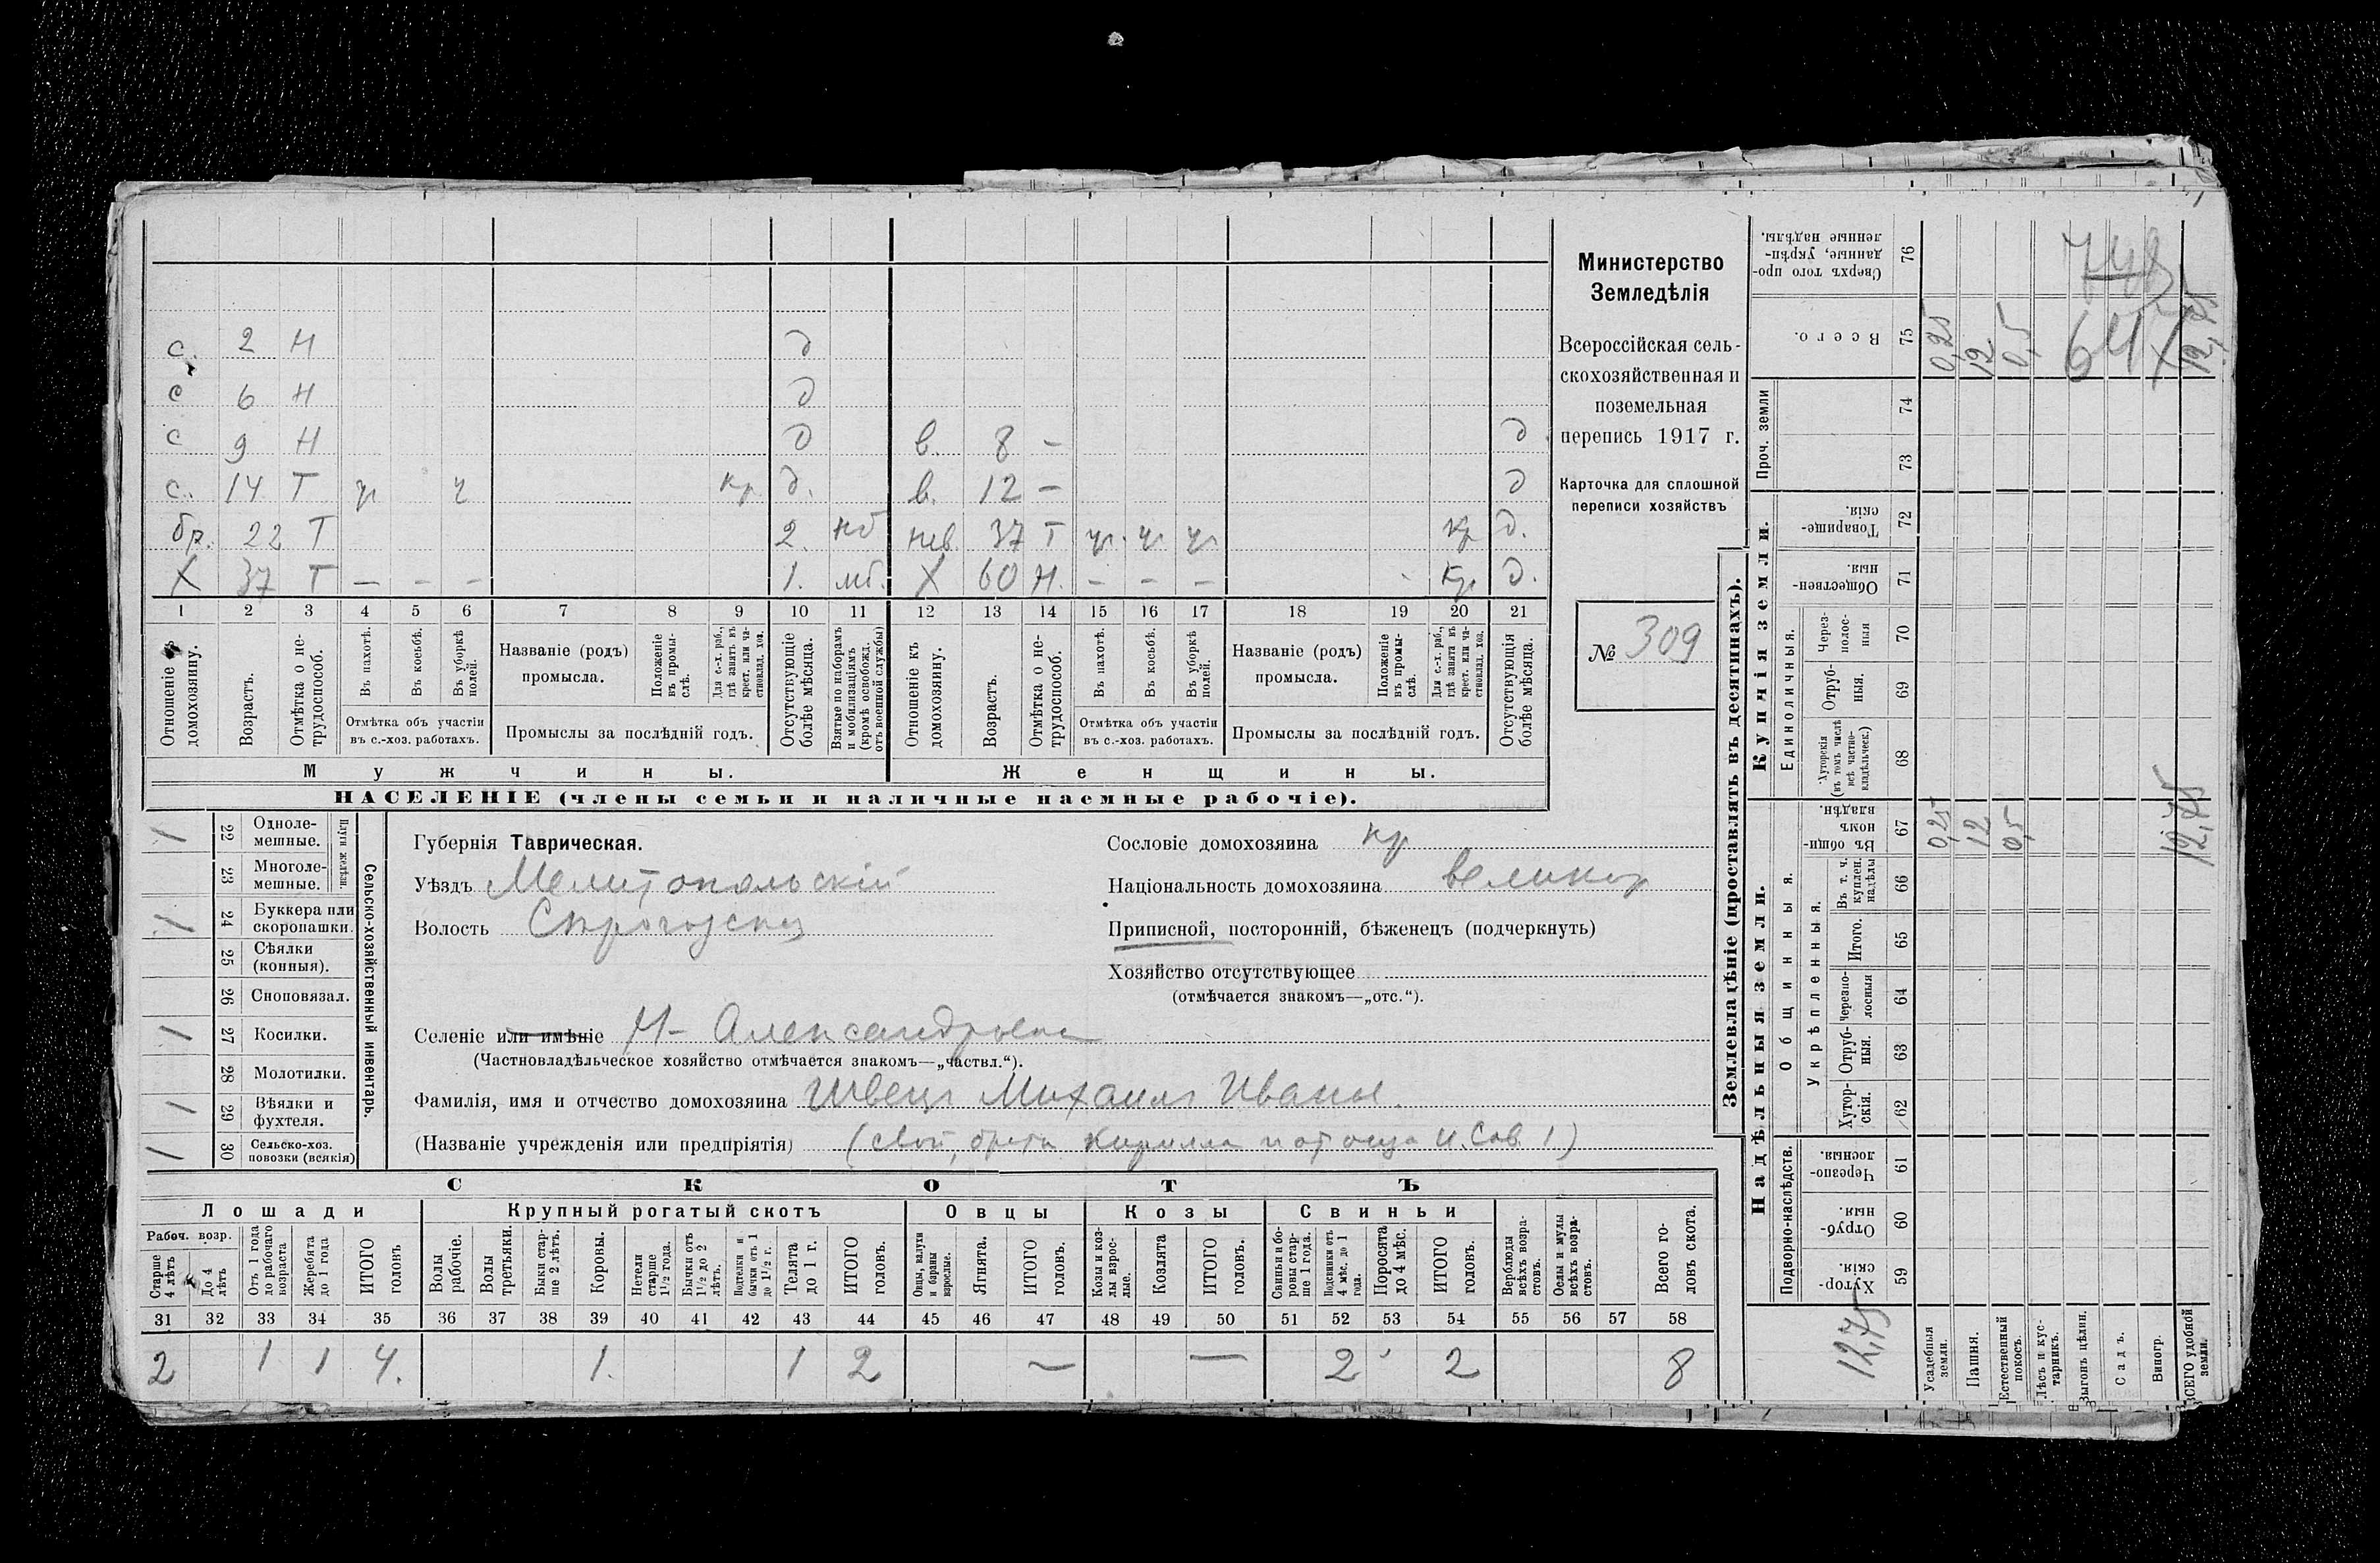 с. 2 Н д
с 6 Н д
с 9 Н д в. 8 – д
с. 14 Т ч ч кр д. в. 12 – д
бр. 22 Т 2. мб нев. 37 Т ч. ч ч кр д.
Х 37 Т – – – 1. мб. Х 60 Н. – – – кр д.
1 2 3 4 5 6 7 8 9 10 11 12 13 14 15 16 17 18 19 20 21
Отношеніе къ домохозяину.
Возрастъ.
Отмѣтка о не-
трудоспособ.
Въ пахотѣ.
Въ косьбѣ.
Въ уборкѣ
полей.
Отмѣтка объ участіи
въ с.-хоз. работахъ.
Названіе (родъ)
промысла.
Положеніе
въ промы-
слѣ.
Для с.-х. раб.,
гдѣ занятъ въ
крест. или ча-
стновлад. хоз.
Промыслы за послѣдній годъ.
Отсутствующіе
болѣе мѣсяца.
Взятые по наборамъ
и мобилизаціямъ
(кромѣ освобожд.
отъ военной службы)
Отношеніе къ
домохозяину.
Возрастъ.
Отмѣтка о не-
трудоспособ.
Въ пахотѣ.
Въ косьбѣ.
Въ уборкѣ
полей.
Отмѣтка объ участіи
въ с.-хоз. работахъ.
Названіе (родъ)
промысла.
Положеніе
въ промы-
слѣ.
Для с.-х. раб.,
гдѣ занята въ
крест. или ча-
стновлад. хоз.
Промыслы за послѣдній годъ.
Отсутствующія
болѣе мѣсяца.
Мужчины.
Женщины.
НАСЕЛЕНІЕ (члены семьи и наличные наемные рабочіе).
Министерство
Земледѣлія
Всероссійская сель-
скохозяйственная и
поземельная
перепись 1917 г.
Карточка для сплошной
переписи хозяйствъ
№ 309
Сельско-хозяйственный инвентарь.
Плуги желѣзн.
/ 22 Одноле-
мешные.
23 Многоле-
мешные.
/ 24 Буккера или
скоропашки.
25 Сѣялки
(конныя).
26 Сноповязал.
/ 27 Косилки.
28 Молотилки.
/ 29 Вѣялки и
фухтеля.
/ 30 Сельско-хоз.
повозки (всякія)
Губернія Таврическая.
Уѣздъ Мелитопольскій
Волость
Селеніе или имѣніе Н- Александровка
(Частновладѣльческое хозяйство отмѣчается знакомъ—„частвл.“).
Фамилія, имя и отчество домохозяина Швецъ Михаилъ Иванов.
(Названіе учрежденія или предпріятія) (свой, брата Кирилла и от отца И. Сав. 1)
Сословіе домохозяина кр
Національность домохозяина великор
Приписной, посторонній, бѣженецъ (подчеркнуть)
Хозяйство отсутствующее
(отмѣчается знакомъ—„отс.“).
СКОТЪ
Лошади
Крупный рогатый скотъ
Овцы
Козы
Свиньи
Рабоч. возр.
Старше
4 лѣтъ
До 4
лѣтъ
Отъ 1 года
до рабочаго
возраста
Жеребята
до 1 года
ИТОГО
головъ
Волы
рабочіе.
Волы
третьяки.
Быки стар-
ше 2 лѣтъ.
Коровы.
Нетели
старше
1 1/2 года.
Бычки отъ
1 1/2 до 2
лѣтъ.
Подтелки и
бычки отъ 1
до 1 1/2 г.
Телята
до 1 г.
ИТОГО
головъ.
Овцы, валухи
и бараны
взрослые.
Ягнята.
ИТОГО
головъ.
Козы и коз-
лы взрос-
лые.
Козлята
ИТОГО
головъ.
Свиньи и бо-
ровы стар-
ше 1 года.
Подсвинки отъ
4 мѣс. до 1
года.
Поросята
до 4 мѣс.
ИТОГО
головъ.
Верблюды
всѣхъ возра-
стовъ.
Ослы и мулы
всѣхъ возра-
стовъ.
Всего го-
ловъ скота.
31 32 33 34 35 36 37 38 39 40 41 42 43 44 45 46 47 48 49 50 51 52 53 54 55 56 57 58
2 1 1 4. 1. 1 2 – – 2 2 8
Землевладѣніе (проставлять въ десятинахъ).
Надѣльныя земли.
Купчія земли.
Проч. земли
Подворно-наслѣдств.
Общинныя.
Укрѣпленныя.
Единоличныя.
Хутор-
скія.
59
Отруб-
ныя.
60
Черезпо-
лосныя.
61
Хутор-
скія.
62
Отруб-
ныя.
63
Черезпо-
лосныя
64
Итого.
65
Въ т. ч.
куплен.
надѣлы
66
Въ общин-
номъ
владѣн.
67
Хуторскія
(въ томъ числѣ
всѣ частно-
владѣльческ.)
68
Отруб-
ныя.
69
Через-
полос-
ныя
70
Обществен-
ныя.
71
Товарище-
скія.
72
73
74
Всего.
75
Сверхъ того про-
данные, укрѣп-
ленные надѣлы.
76
12,75
Усадебныя
земли.
0,25
0,25
Пашня.
12
12
Естественный
покосъ.
0,5
0,5
Лѣсъ и кус-
тарникъ.
Выгонъ цѣлин.
Садъ.
Виногр.
ВСЕГО удобной
земли.
12,75
12,75
748